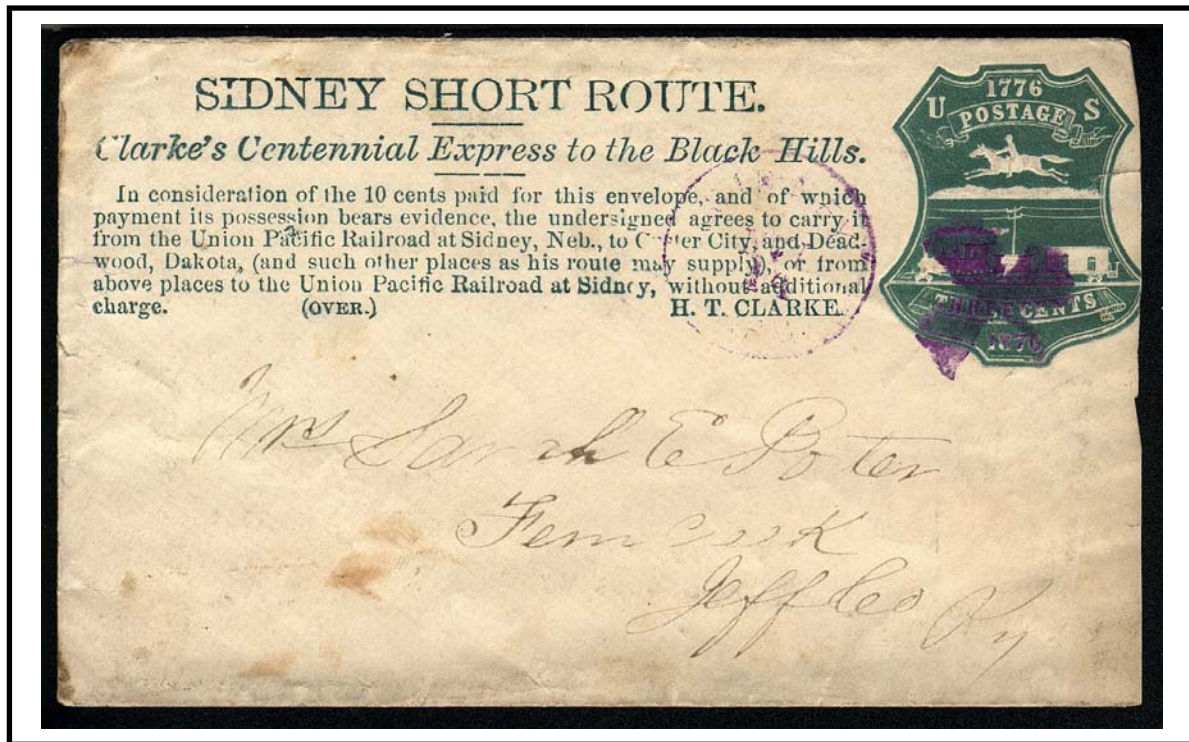 SIDNEY SHORT ROUTE.
Clarke's Centennial Express to the Black Hills.
In consideration of the 10 cents paid for this envelope, and of which
payment its possession bears evidence, the undersigned agrees to carry it
from the Union Pacific Railroad at Sidney, Neb., to Custer City, and Dead-
wood, Dakota, (and such other places as his route may supply), or from
above places to the Union Pacific Railroad at Sidney, without additional
charge. (OVER.) H. T. CLARKE.
1776
U S
POSTAGE
THREE CENTS
1876
Mrs Sarah E Poter
Fern Creek
Jeff Co Ky